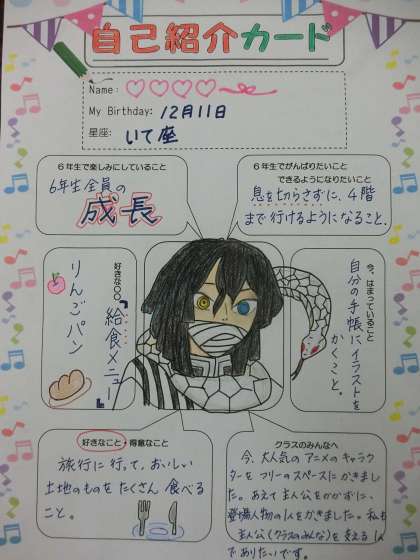 自己紹介カード
Name: ♡♡♡♡
My Birthday: 12月11日
星座: いて座
6年生で楽しみにしていること
6年生全員の
成長
6年生でがんばりたいこと
できるようになりたいこと
息を切らさずに、4階
まで行けるようになること。
好きな○○
『給食メニュー』
りんごパン
今、はまっていること
自分の手帳にイラストを
かくこと。
好きなこと・得意なこと
旅行に行って、おいしい
土地のものをたくさん食べる
こと。
クラスのみんなへ
今、大人気のアニメのキャラク
ターをフリーのスペースにかきまし
た。あえて主人公をかかずに、
登場人物の1人をかきました。私も
主人公(クラスのみんな)を支える1人
でありたいです。